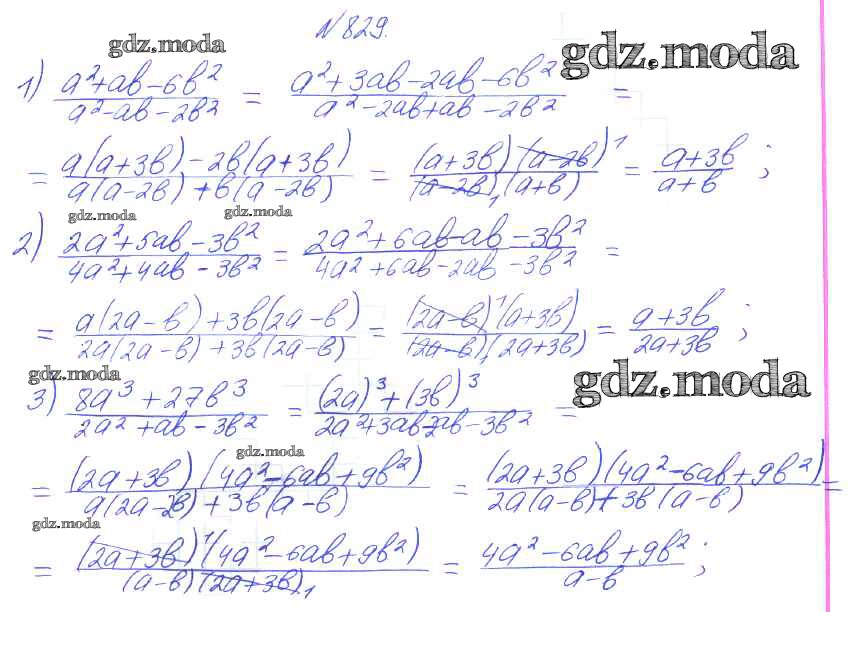 №829.
gdz.moda
gdz.moda
1) (a²+ab-6b²)/(a²-ab-2b²) = (a²+3ab-2ab-6b²)/(a²-2ab+ab-2b²) =
= (a(a+3b)-2b(a+3b))/(a(a-2b)+b(a-2b)) = ((a+3b)(a-2b)¹)/((a-2b)₁(a+b)) = (a+3b)/(a+b) ;
gdz.moda gdz.moda
2) (2a²+5ab-3b²)/(4a²+4ab-3b²) = (2a²+6ab-ab-3b²)/(4a²+6ab-2ab-3b²) =
= (a(2a-b)+3b(2a-b))/(2a(2a-b)+3b(2a-b)) = ((2a-b)¹(a+3b))/((2a-b)₁(2a+3b)) = (a+3b)/(2a+3b) ;
gdz.moda
gdz.moda
3) (8a³+27b³)/(2a²+ab-3b²) = ((2a)³+(3b)³)/(2a²+3ab-2ab-3b²) =
gdz.moda
= ((2a+3b)(4a²-6ab+9b²))/(a(2a-2b)+3b(a-b)) = ((2a+3b)(4a²-6ab+9b²))/(2a(a-b)+3b(a-b)) =
gdz.moda
= ((2a+3b)¹(4a²-6ab+9b²))/((a-b)(2a+3b)₁) = (4a²-6ab+9b²)/(a-b) ;